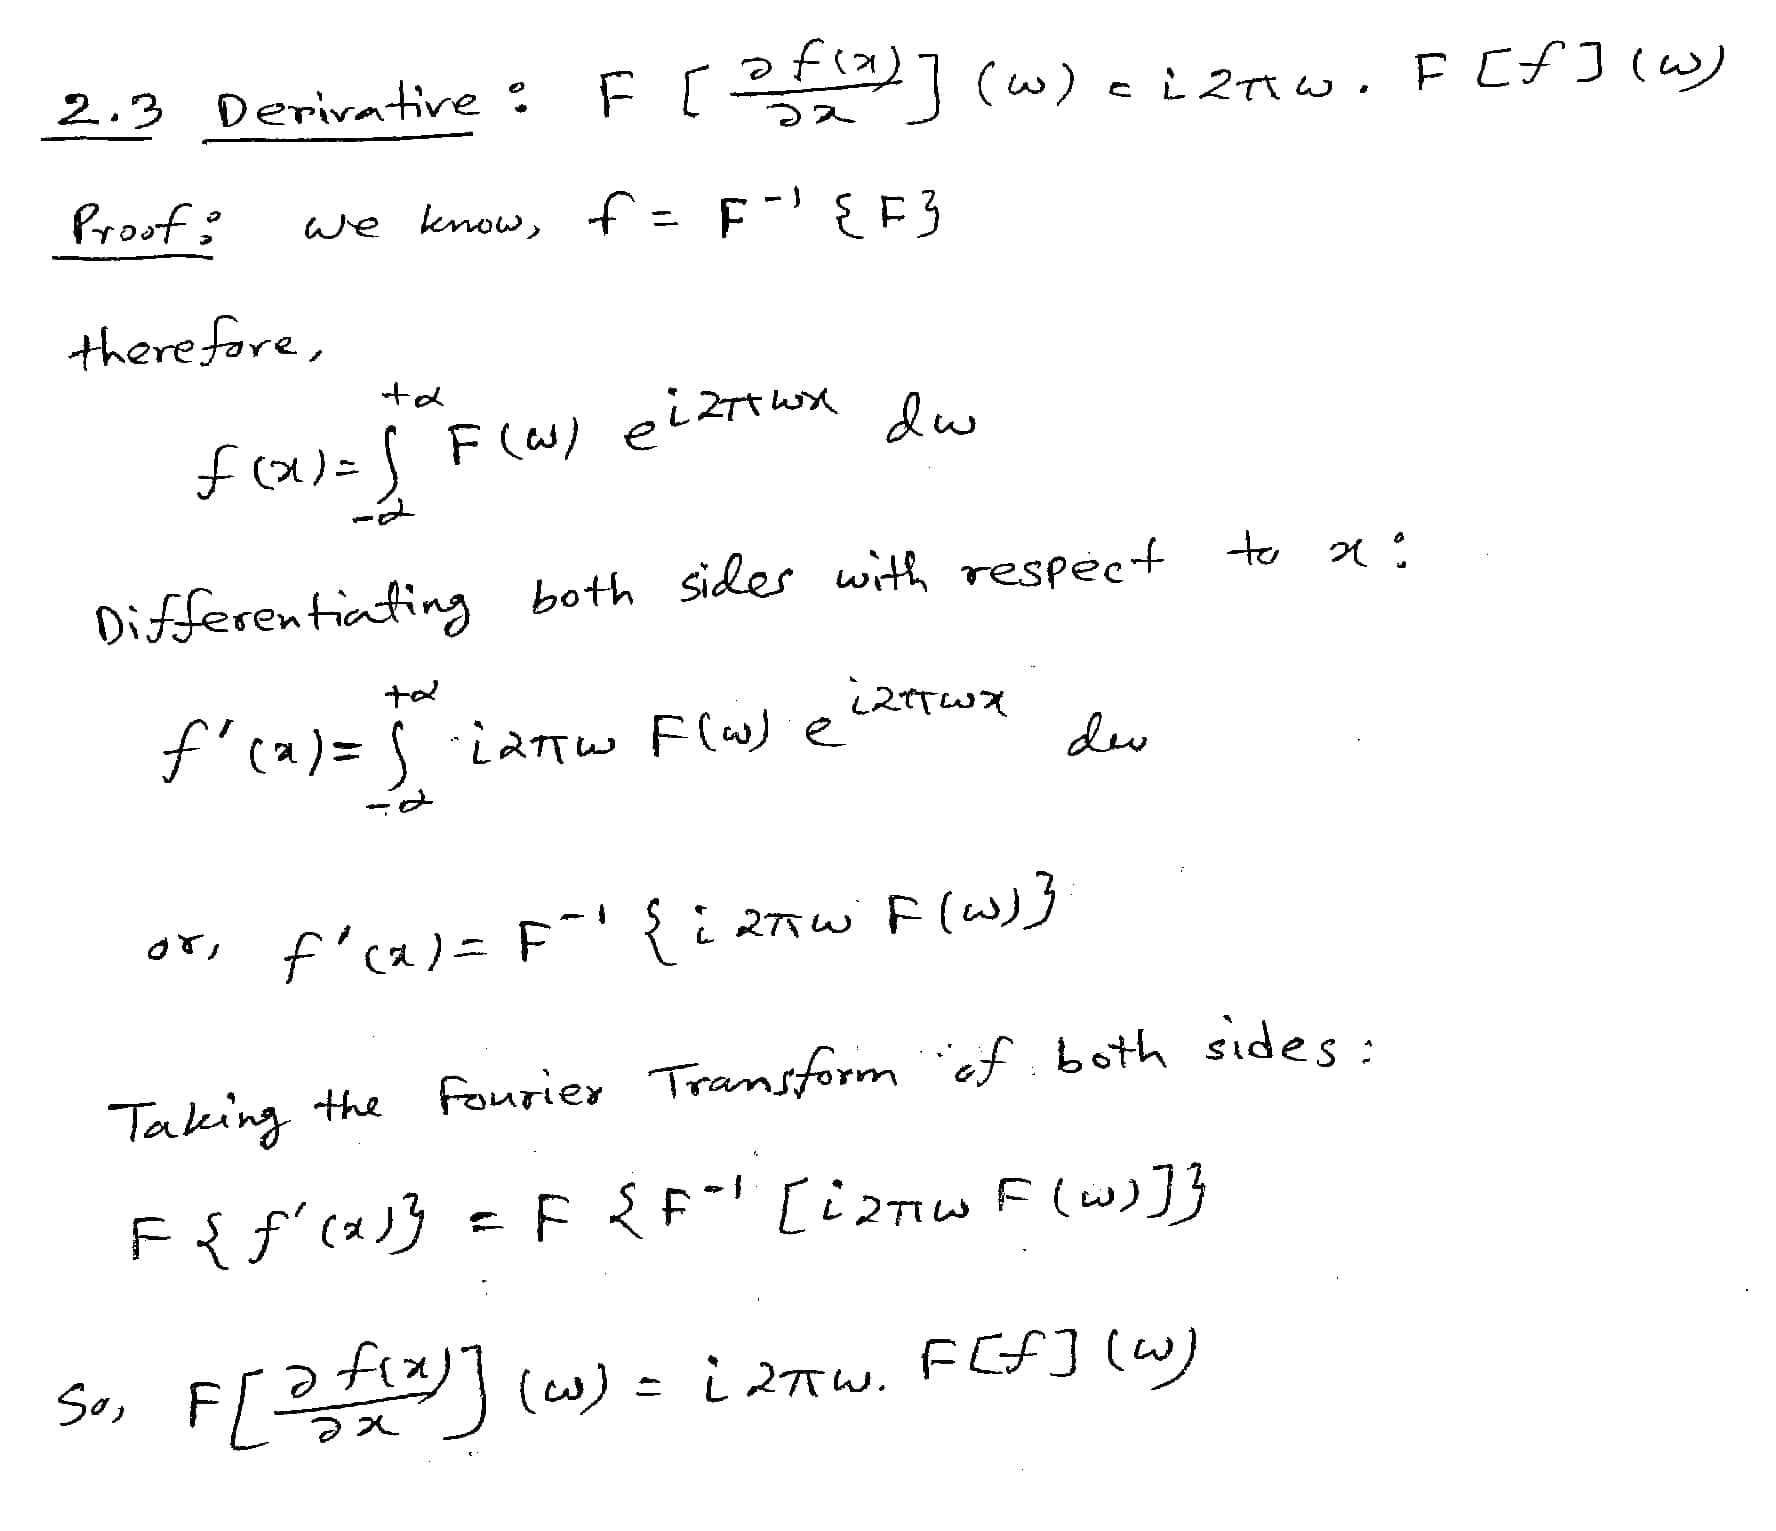 2.3 Derivative : F [∂f(x)/∂x] (ω) = i2πω . F[f](ω)
Proof: we know, f = F⁻¹ {F}
therefore,
f(x) = ∫_{-∞}^{+∞} F(ω) e^{i2πωx} dω
Differentiating both sides with respect to x :
f'(x) = ∫_{-∞}^{+∞} i2πω F(ω) e^{i2πωx} dω
or, f'(x) = F⁻¹ {i2πω F(ω)}
Taking the Fourier Transform of both sides :
F {f'(x)} = F {F⁻¹ [i2πω F(ω)]}
So, F[∂f(x)/∂x] (ω) = i2πω. F[f](ω)